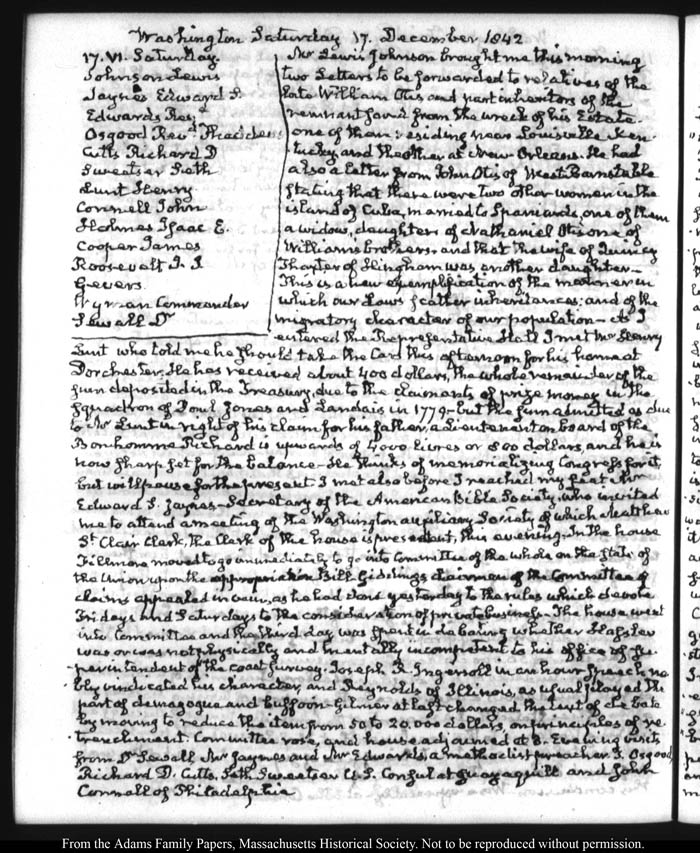 Washington Saturday 17. December 1842
17. VI. Saturday.
Johnson Lewis
Jaynes Edward S.
Edwards Rev.d
Osgood Rev.d Thaddeus
Cutts Richard D
Sweetser Seth
Lunt Henry
Connell John
Holmes Isaac E.
Cooper James
Roosevelt J. I
Gevers
Wyman Commander
Sewall Dr
Mr Lewis Johnson brought me this morning
two Letters to be forwarded to relatives of the
late William Otis and part inheritors of the
remnant sav'd from the wreck of his Estate.
one of them residing near Louisville Ken-
tucky and the other at New-Orleans. He had
also a letter from John Otis of West Barnstable
stating that there were two other women in the
island of Cuba, married to Spaniards, one of them
a widow, daughters of Nathaniel Otis one of
William's brothers. and that the wife of Quincy
Thaxter of Hingham was another daughter—
This is a new exemplification of the manner in
which our Laws scatter inheritances; and of the
migratory character of our population— As I
entered the Representative Hall I met Mr Henry
Lunt who told me he should take the Cars this afternoon for his home at
Dorchester. He has received about 400 dollars, the whole remainder of the
sum deposited in the Treasury, due to the claimants of prize money in the
squadron of Paul Jones and Landais in 1779— but the sum admitted as due
to Mr Lunt in right of his claim for his father, a Lieutenant on board of the
Bonhomme Richard is upwards of 4000 livres or 800 dollars, and he is
now sharp set for the balance— He thinks of memorializing Congress for it,
but will pause for the present. I met also before I reached my seat Mr
Edward S. Jaynes— Secretary of the American Bible Society, who invited
me to attend a meeting of the Washington auxiliary Society of which Matthew
St Clair Clark, the Clerk of the house is president, this evening. In the house
Fillmore moved to go immediately to go into Committee of the whole on the state of
the Union upon the appropriation Bill. Giddings chairman of the Committee of
claims appealed in vain, as he had done yesterday to the rules which devote
Fridays and Saturdays to the consideration of private business. The house went
into Committee and the third day was spent in debating whether Hassler
was or was not physically and mentally incompetent to his office of Su-
perintendent of the coast survey. Joseph R. Ingersoll in an hour speech no-
bly vindicated his character, and Reynolds of Illinois, as usual played the
part of demagogue and buffoon— Gilmer at last changed the turf of debate
by moving to reduce the item from 50 to 20,000 dollars, on principles of re-
trenchment. Committee rose, and house adjourned at 3. Evening visits
from Dr Sewall Mr Jaynes and Mr Edwards, a methodist preacher. T. Osgood
Richard D. Cutts, Seth Sweetser U.S. Consul at Guayaquill and John
Connell of Philadelphia
From the Adams Family Papers, Massachusetts Historical Society. Not to be reproduced without permission.